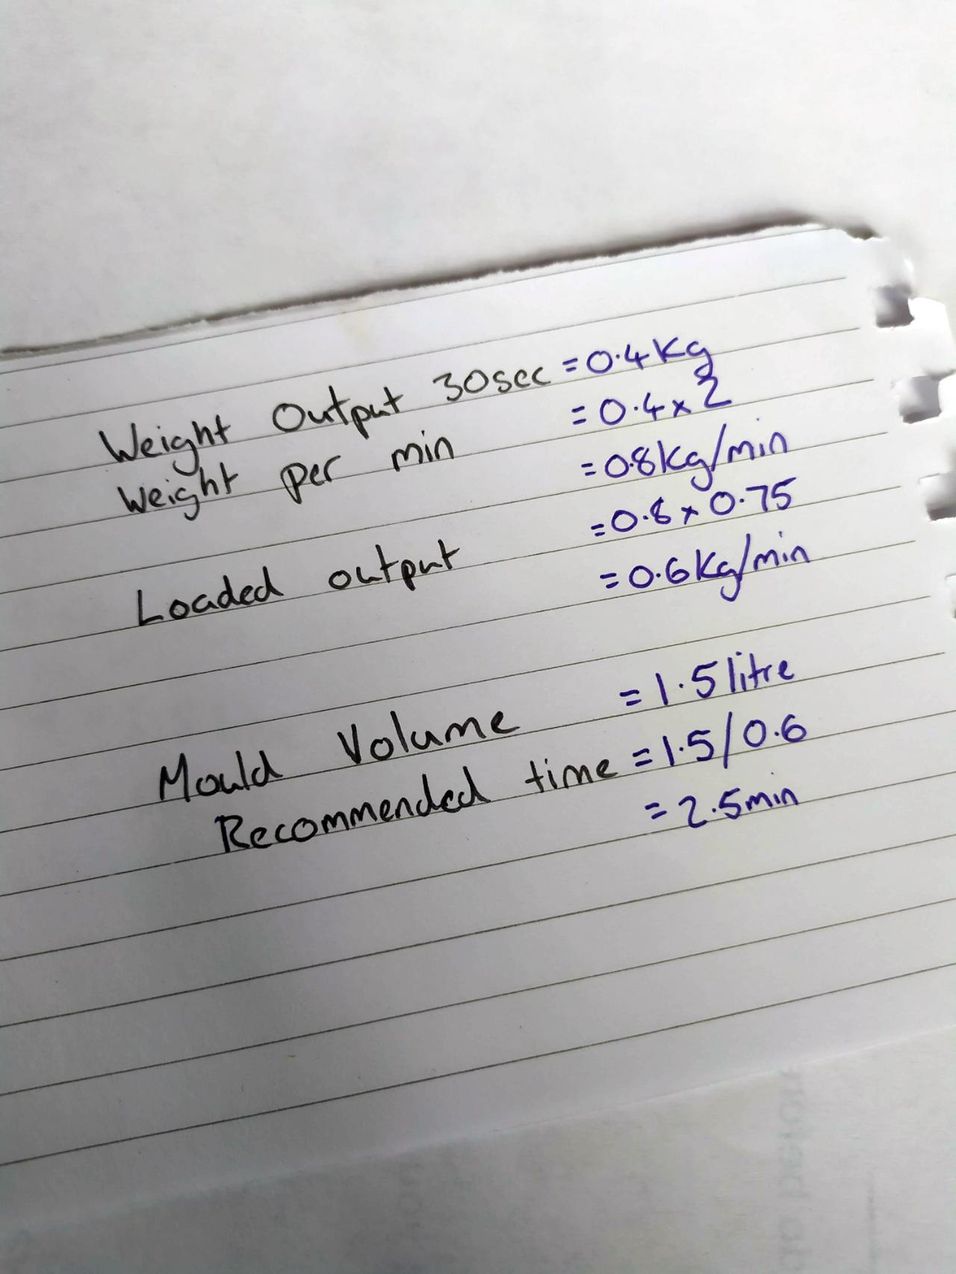 Weight Output 30sec = 0.4Kg
Weight per min = 0.4 x 2
= 0.8kg/min
Loaded output = 0.8 x 0.75
= 0.6Kg/min
Mould Volume = 1.5 litre
Recommended time = 1.5/0.6
= 2.5min